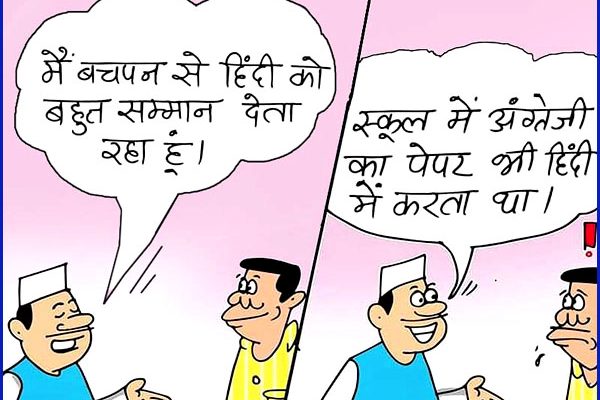 मैं बचपन से हिंदी को
बहुत सम्मान देता
रहा हूं।
स्कूल में अंग्रेजी
का पेपर भी हिंदी
में करता था।
!